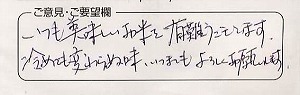 ご意見・ご要望欄
いつも美味しいお米を有難うございます。
冷めても変わらぬ味、いつまでもよろしくお願いします。